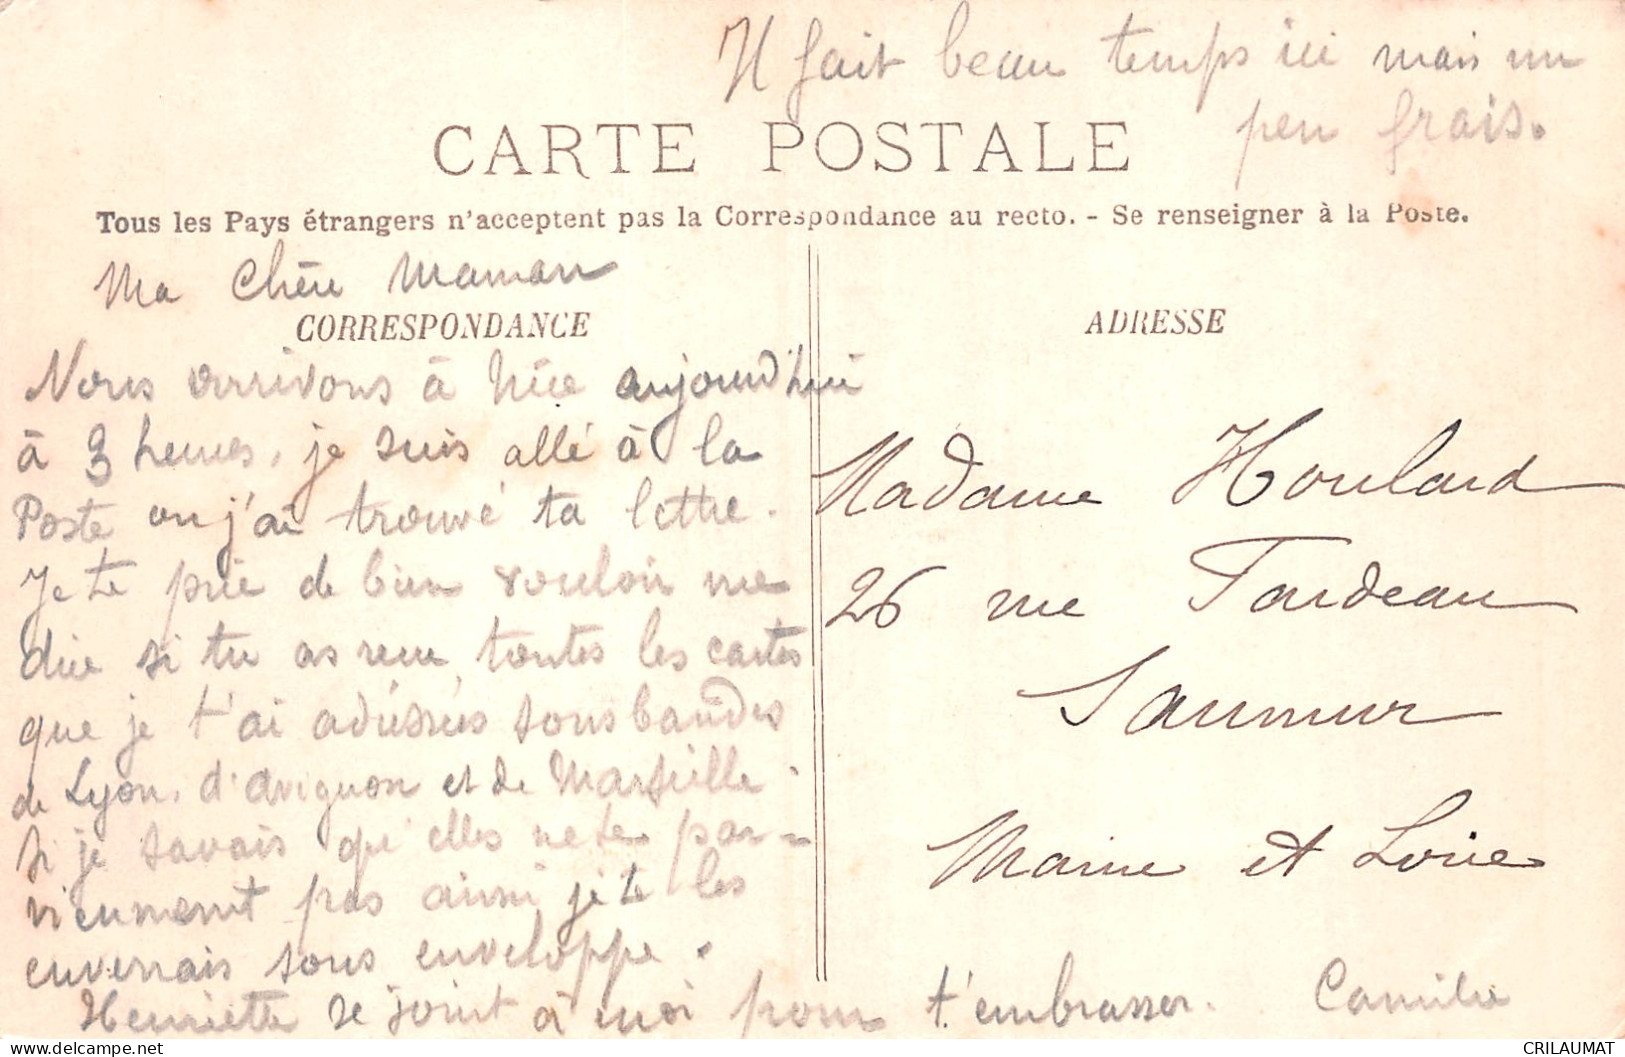 Il fait beau temps ici mais un
peu frais.
CARTE POSTALE
Tous les Pays étrangers n'acceptent pas la Correspondance au recto. - Se renseigner à la Poste.
Ma Chère Maman
CORRESPONDANCE
Nous arrivons à Nice aujourd'hui
à 3 heures, je suis allé à la
Poste ou j'ai trouvé ta lettre.
Je te prie de bien vouloir me
dire si tu as reçu toutes les cartes
que je t'ai adréssées sous bandes
de Lyon, d'avignon et de Marseille.
si je savais qu'elles ne te par-
viennent pas ainsi je te les
enverrais sous enveloppe.
Henriette se joint à moi pour t'embrasser. Camille
ADRESSE
Madame Houlard
26 rue Fardeau
Saumur
Maine et Loire
delcampe.net
CRILAUMAT